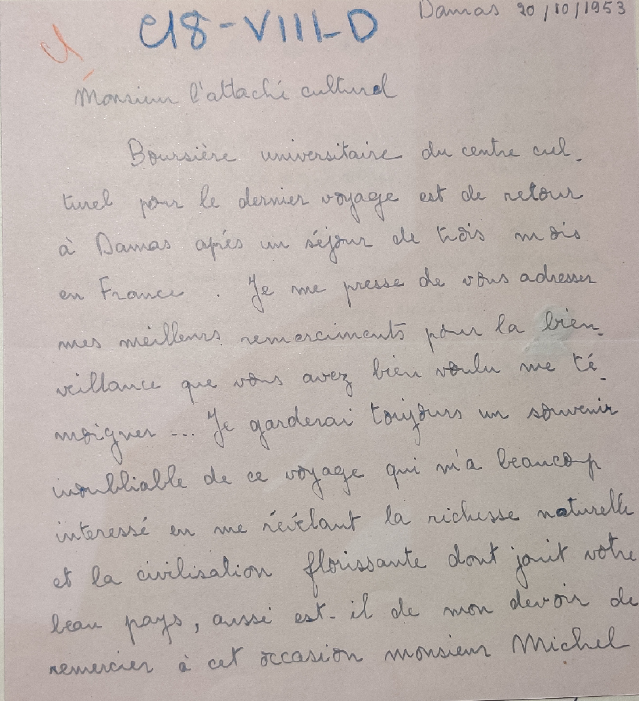 C18-VIII-D
Damas 20/10/1953
Monsieur l'attaché culturel
Boursière universitaire du centre cul-
turel pour le dernier voyage est de retour
à Damas aprés un séjour de trois mois
en France. Je me presse de vous adresser
mes meilleurs remerciments pour la bien-
veillance que vous avez bien voulu me té-
moigner... Je garderai toujours un souvenir
inoubliable de ce voyage qui m'a beaucoup
interessé en me révélant la richesse naturelle
et la civilisation florissante dont jouit votre
beau pays, aussi est-il de mon devoir de
remercier à cet occasion monsieur Michel